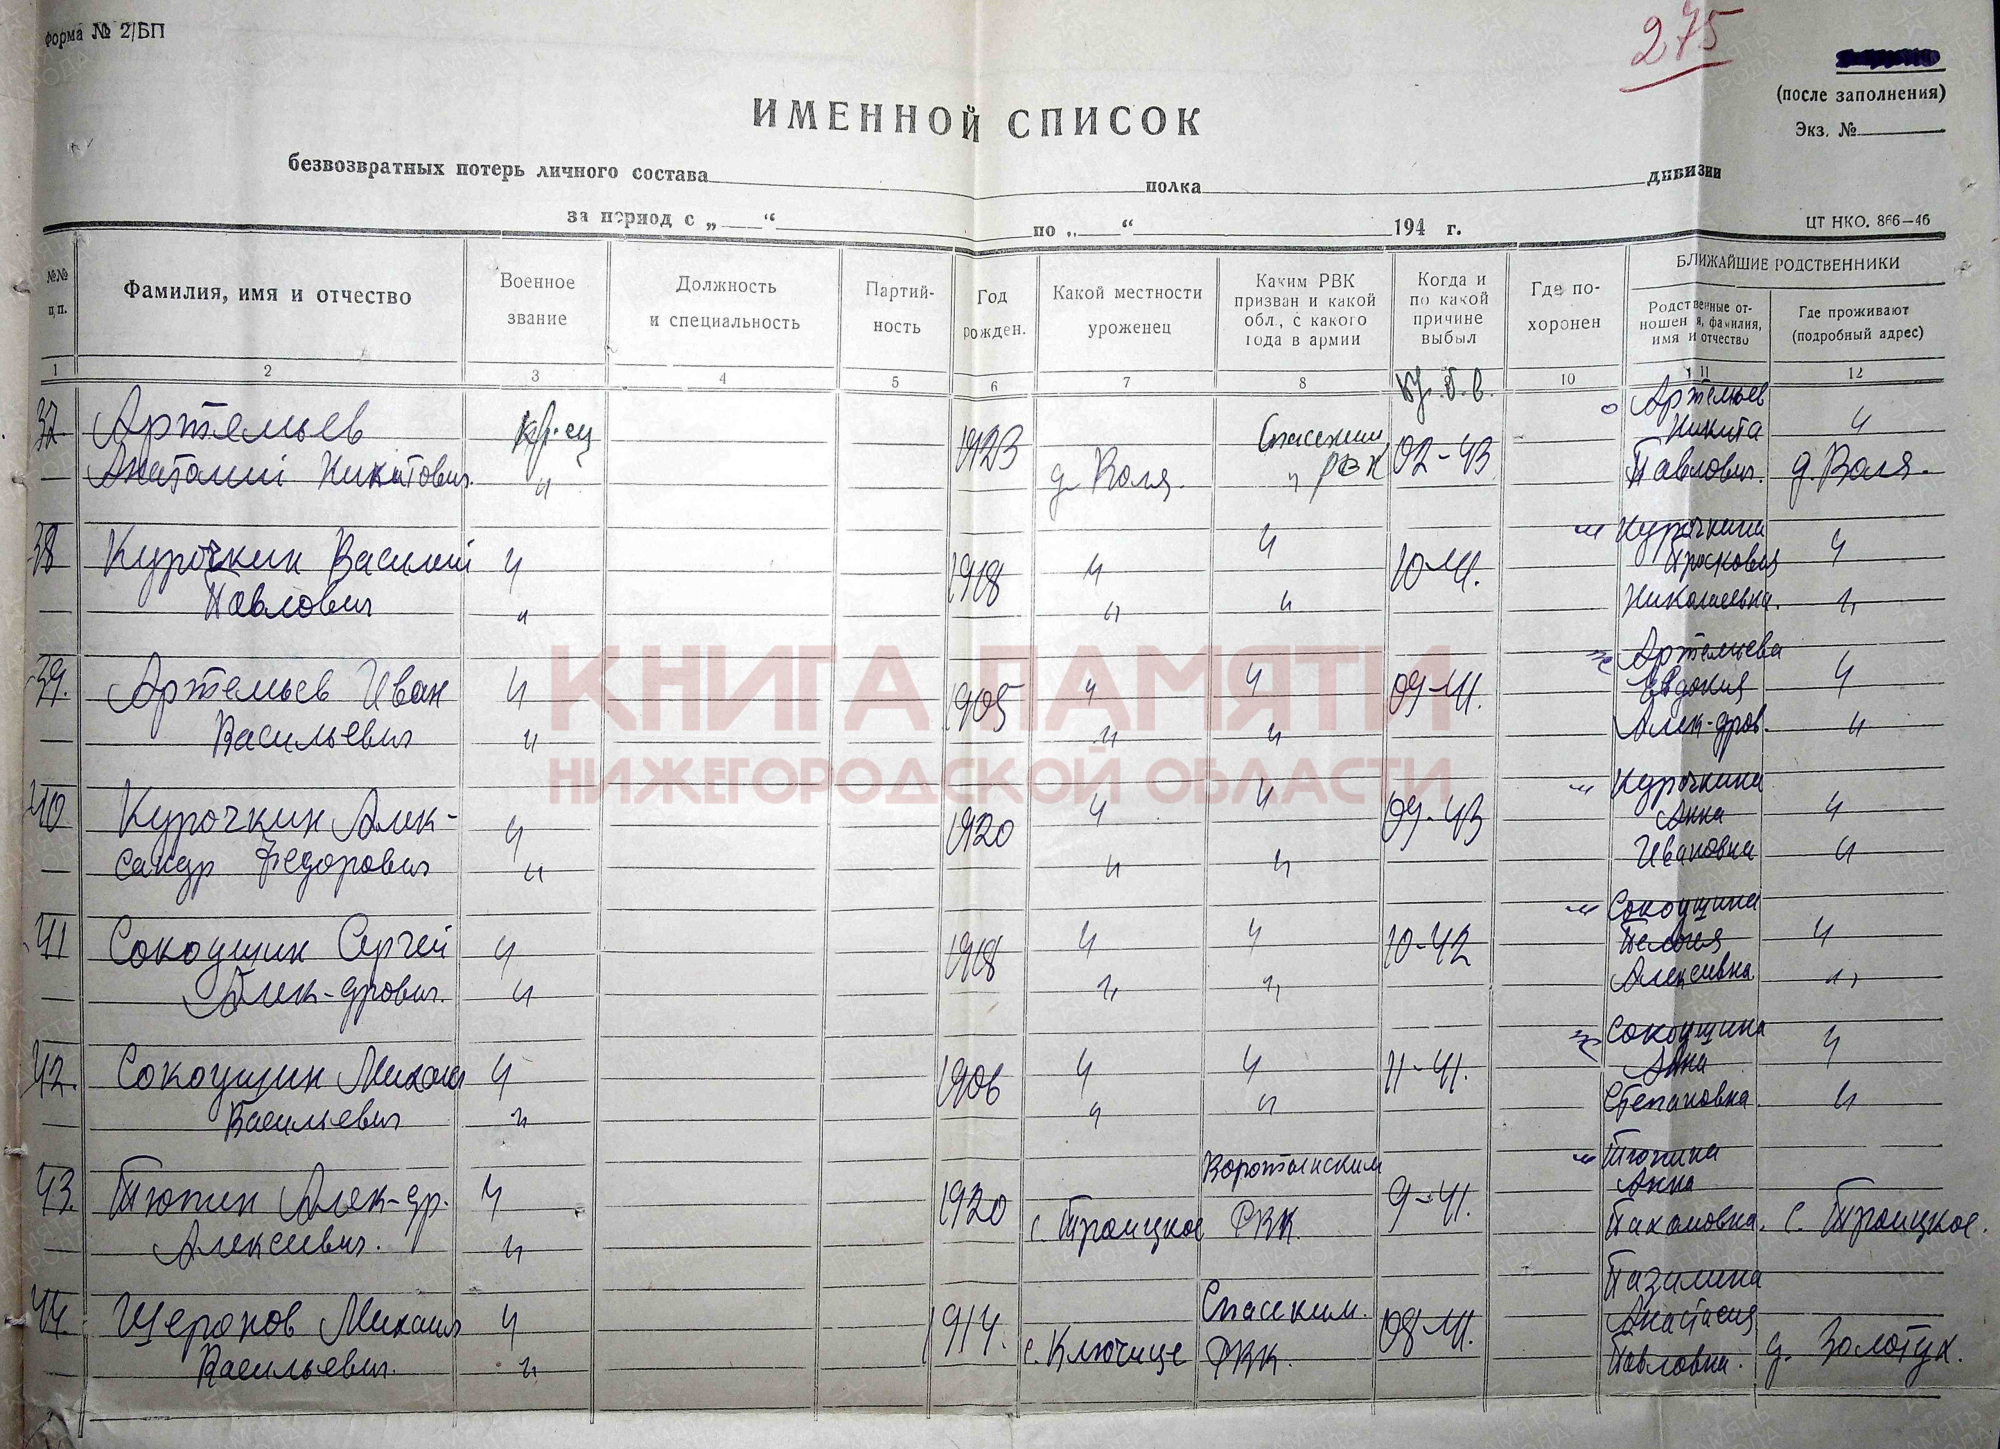 Форма № 2/БП
275
(после заполнения)
Экз. №
ИМЕННОЙ СПИСОК
безвозвратных потерь личного состава полка дивизии
за период с „ “ по „ “ 194 г.
ЦТ НКО. 866—46
№№ п/п.
Фамилия, имя и отчество
Военное звание
Должность и специальность
Партий-ность
Год рожден.
Какой местности уроженец
Каким РВК призван и какой обл., с какого года в армии
Когда и по какой причине выбыл
Где по-хоронен
БЛИЖАЙШИЕ РОДСТВЕННИКИ
Родственные от-ношения, фамилия, имя и отчество
Где проживают (подробный адрес)
1 2 3 4 5 6 7 8 10 11 12
37 Артемьев кр-ец 1923 Спасским 02-43 Артемьев Никита "
Анатолий Никитович " д. Воля. " РВК Павлович. д. Воля.
38 Курочкин Василий " 1918 " " 10-41. " Курочкина Просковия "
Павлович " " " Николаевна. "
39. Артемьев Иван " 1905 " " 09-41. Артемьева Евдокия "
Васильевич " " " Алек-дров. "
40 Курочкин Алек- " 1920 " " 09-43 " Курочкина Анна "
сандр Федорович " " " Ивановна "
41 Сокоущин Сергей " 1918 " " 10-42 " Сокоущина "
Алек-дрович. " " " Алексеевна "
42. Сокоущин Михаил " 1906 " " 11-41. Сокоущина Анна "
Васильевич " " " Степановна. "
43. Тюпин Алек-др. " 1920 Воротынским 9-41. " Тюпина Анна
Алексеевич. " с. Троицкое РВК. Пахомовна. с. Троицкое.
44. Щеронов Михаил " 1914. Спасским. 08-41. Пазилина Анастасия
Васильевич. " с. Ключище РВК. Павловна. д. Золотух.
КНИГА ПАМЯТИ
НИЖЕГОРОДСКОЙ ОБЛАСТИ